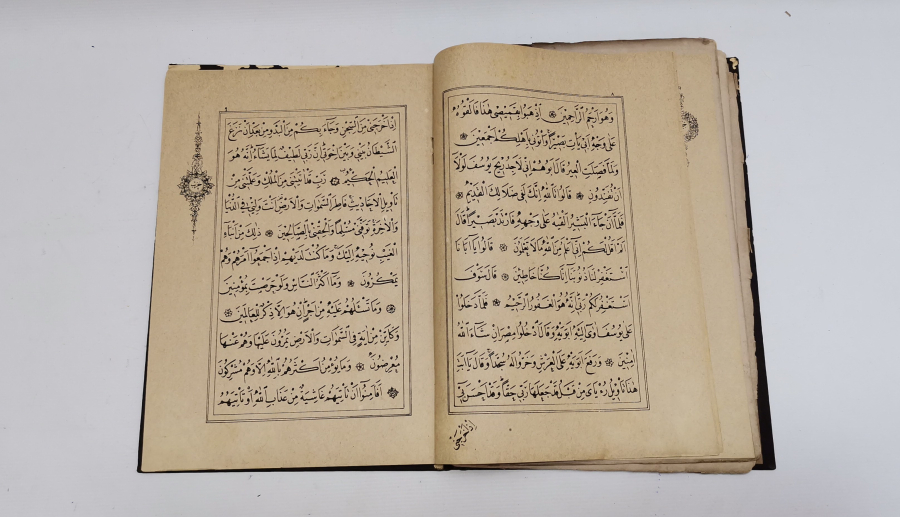 وَهُوَ اَرْحَمُ الرَّاحِمِينَ ۞ اِذْهَبُوا بِقَمِيصِي هٰذَا فَاَلْقُوهُ
عَلَى وَجْهِ اَبِي يَأْتِ بَصِيرًا وَأْتُونِي بِاَهْلِكُمْ اَجْمَعِينَ
وَلَمَّا فَصَلَتِ الْعِيرُ قَالَ اَبُوهُمْ اِنِّي لَاَجِدُ رِيحَ يُوسُفَ لَوْلَا
اَنْ تُفَنِّدُونِ ۞ قَالُوا تَاللّٰهِ اِنَّكَ لَفِي ضَلَالِكَ الْقَدِيمِ ۞
فَلَمَّا اَنْ جَاءَ الْبَشِيرُ اَلْقٰيهُ عَلَى وَجْهِهِ فَارْتَدَّ بَصِيرًا قَالَ
اَلَمْ اَقُلْ لَكُمْ اِنِّي اَعْلَمُ مِنَ اللّٰهِ مَا لَا تَعْلَمُونَ ۞ قَالُوا يَا اَبَانَا
اسْتَغْفِرْ لَنَا ذُنُوبَنَا اِنَّا كُنَّا خَاطِئِينَ ۞ قَالَ سَوْفَ
اَسْتَغْفِرُ لَكُمْ رَبِّي اِنَّهُ هُوَ الْغَفُورُ الرَّحِيمُ ۞ فَلَمَّا دَخَلُوا
عَلَى يُوسُفَ اٰوَى اِلَيْهِ اَبَوَيْهِ وَقَالَ ادْخُلُوا مِصْرَ اِنْ شَاءَ اللّٰهُ
اٰمِنِينَ ۞ وَرَفَعَ اَبَوَيْهِ عَلَى الْعَرْشِ وَخَرُّوا لَهُ سُجَّدًا وَقَالَ يَا اَبَتِ
هٰذَا تَأْوِيلُ رُءْيَايَ مِنْ قَبْلُ قَدْ جَعَلَهَا رَبِّي حَقًّا وَقَدْ اَحْسَنَ بِي
اِذْ اَخْرَجَنِي
اِذْ اَخْرَجَنِي مِنَ السِّجْنِ وَجَاءَ بِكُمْ مِنَ الْبَدْوِ مِنْ بَعْدِ اَنْ نَزَغَ
الشَّيْطَانُ بَيْنِي وَبَيْنَ اِخْوَتِي اِنَّ رَبِّي لَطِيفٌ لِمَا يَشَاءُ اِنَّهُ هُوَ
الْعَلِيمُ الْحَكِيمُ ۞ رَبِّ قَدْ اٰتَيْتَنِي مِنَ الْمُلْكِ وَعَلَّمْتَنِي مِنْ
تَأْوِيلِ الْاَحَادِيثِ فَاطِرَ السَّمٰوَاتِ وَالْاَرْضِ اَنْتَ وَلِيِّي فِي الدُّنْيَا
وَالْاٰخِرَةِ تَوَفَّنِي مُسْلِمًا وَاَلْحِقْنِي بِالصَّالِحِينَ ۞ ذٰلِكَ مِنْ اَنْبَاءِ
الْغَيْبِ نُوحِيهِ اِلَيْكَ وَمَا كُنْتَ لَدَيْهِمْ اِذْ اَجْمَعُوا اَمْرَهُمْ وَهُمْ
يَمْكُرُونَ ۞ وَمَا اَكْثَرُ النَّاسِ وَلَوْ حَرَصْتَ بِمُؤْمِنِينَ
۞ وَمَا تَسْـَٔلُهُمْ عَلَيْهِ مِنْ اَجْرٍ اِنْ هُوَ اِلَّا ذِكْرٌ لِلْعَالَمِينَ ۞
وَكَاَيِّنْ مِنْ اٰيَةٍ فِي السَّمٰوَاتِ وَالْاَرْضِ يَمُرُّونَ عَلَيْهَا وَهُمْ عَنْهَا
مُعْرِضُونَ ۞ وَمَا يُؤْمِنُ اَكْثَرُهُمْ بِاللّٰهِ اِلَّا وَهُمْ مُشْرِكُونَ
۞ اَفَاَمِنُوا اَنْ تَأْتِيَهُمْ غَاشِيَةٌ مِنْ عَذَابِ اللّٰهِ اَوْ تَأْتِيَهُمُ